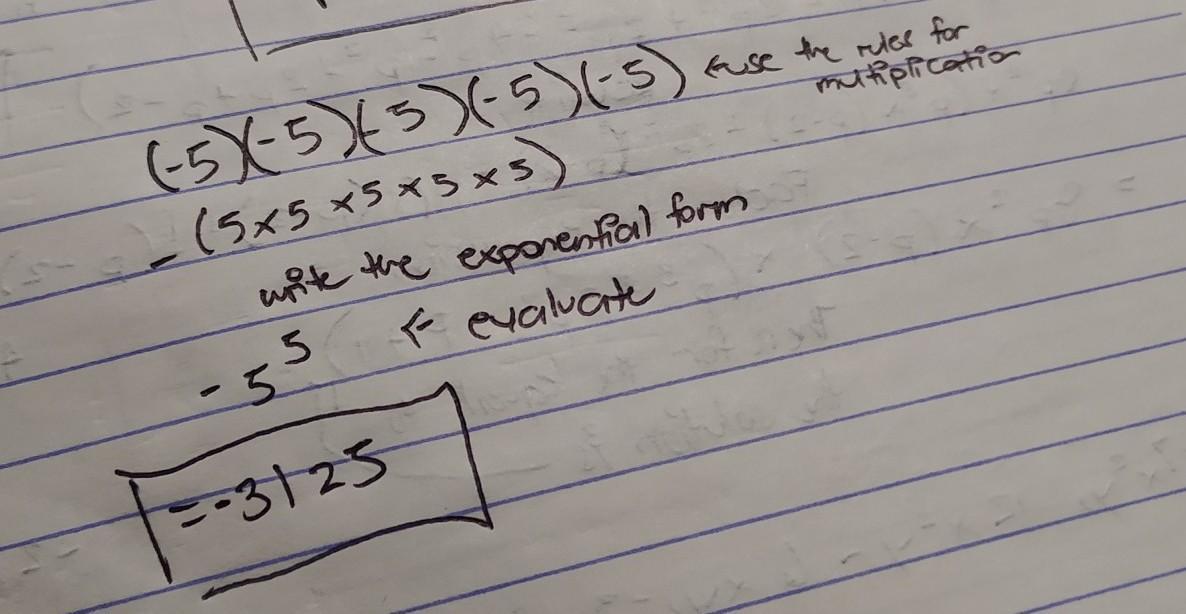 (-5)(-5)(-5)(-5)(-5) ← use the rules for
multiplication
- (5×5×5×5×5)
write the exponential form
-5⁵ ← evaluate
=-3125